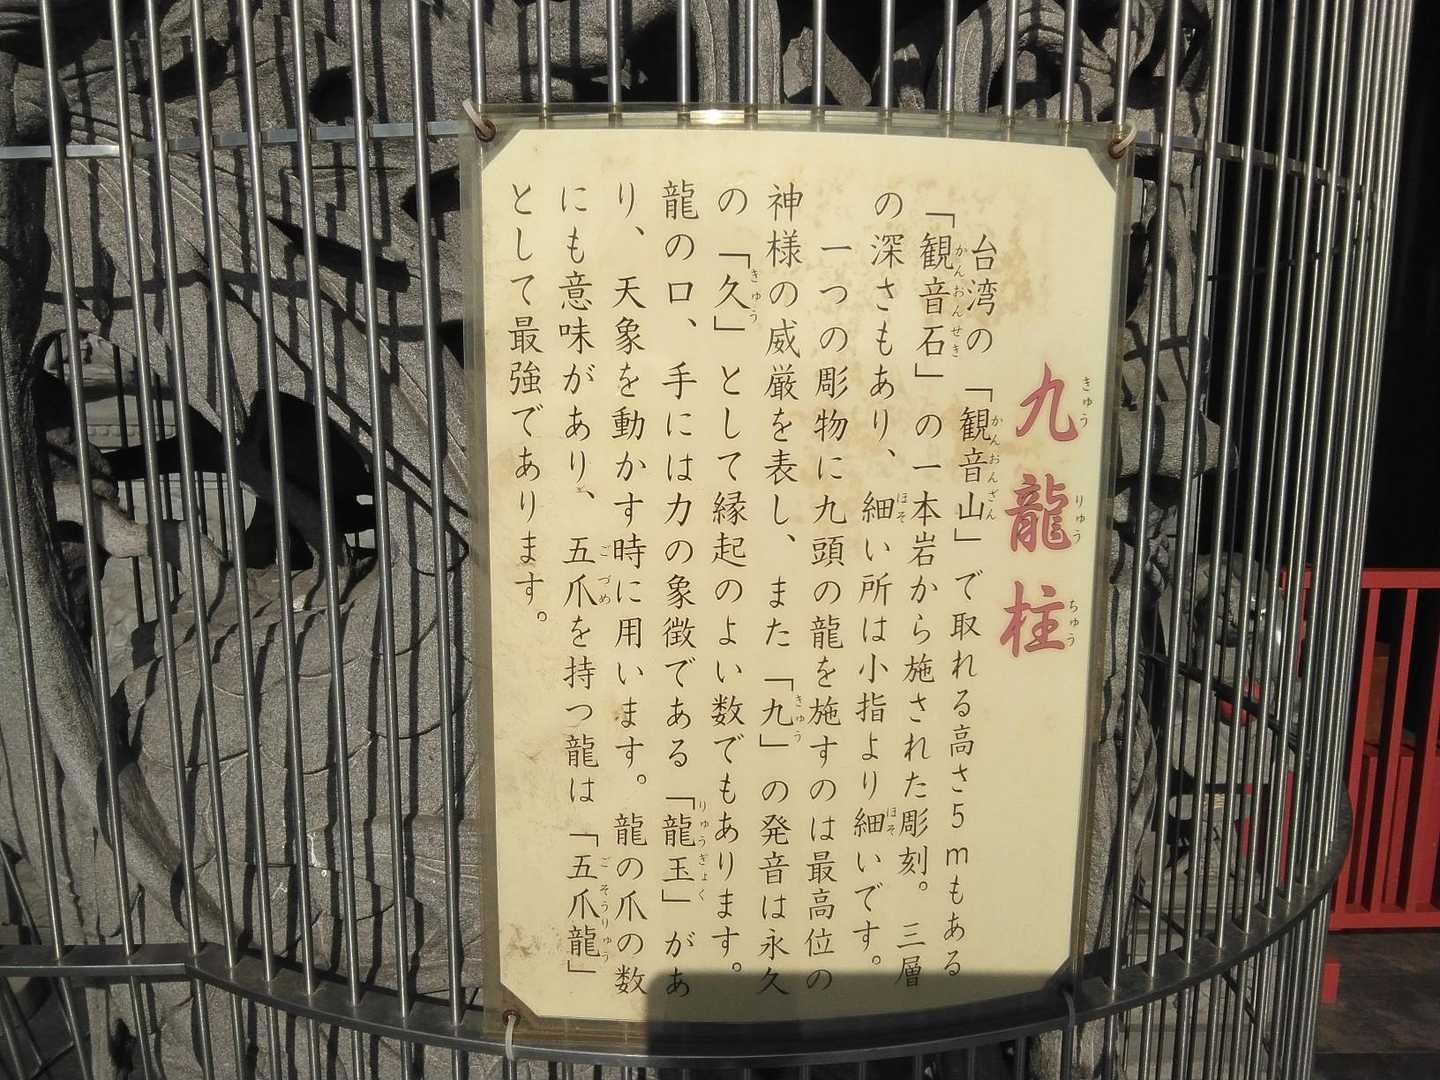 九龍柱
台湾の「観音山」で取れる高さ5mもある
「観音石」の一本岩から施された彫刻。三層
の深さもあり、細い所は小指より細いです。
一つの彫物に九頭の龍を施すのは最高位の
神様の威厳を表し、また「九」の発音は永久
の「久」として縁起のよい数でもあります。
龍の口、手には力の象徴である「龍玉」があ
り、天象を動かす時に用います。龍の爪の数
にも意味があり、五爪を持つ龍は「五爪龍」
として最強であります。